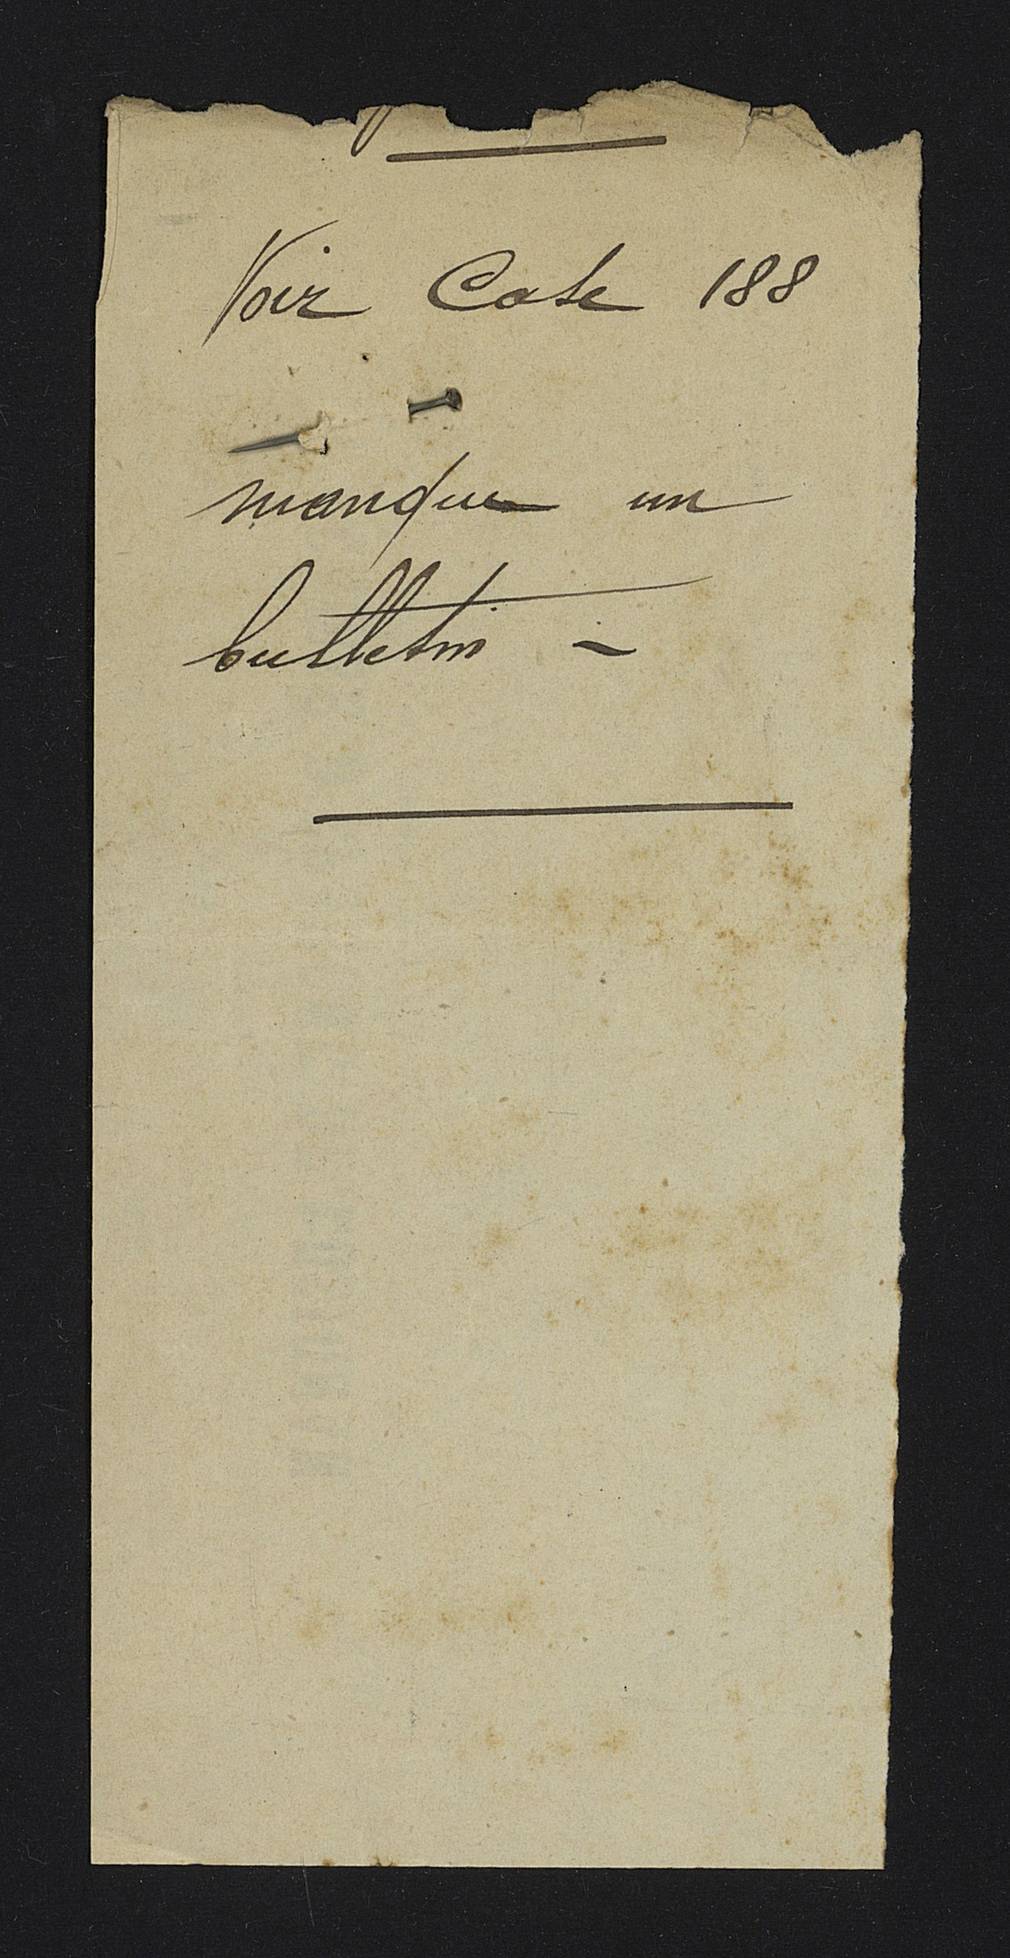 Voir Cote 188
manque un
bulletin -